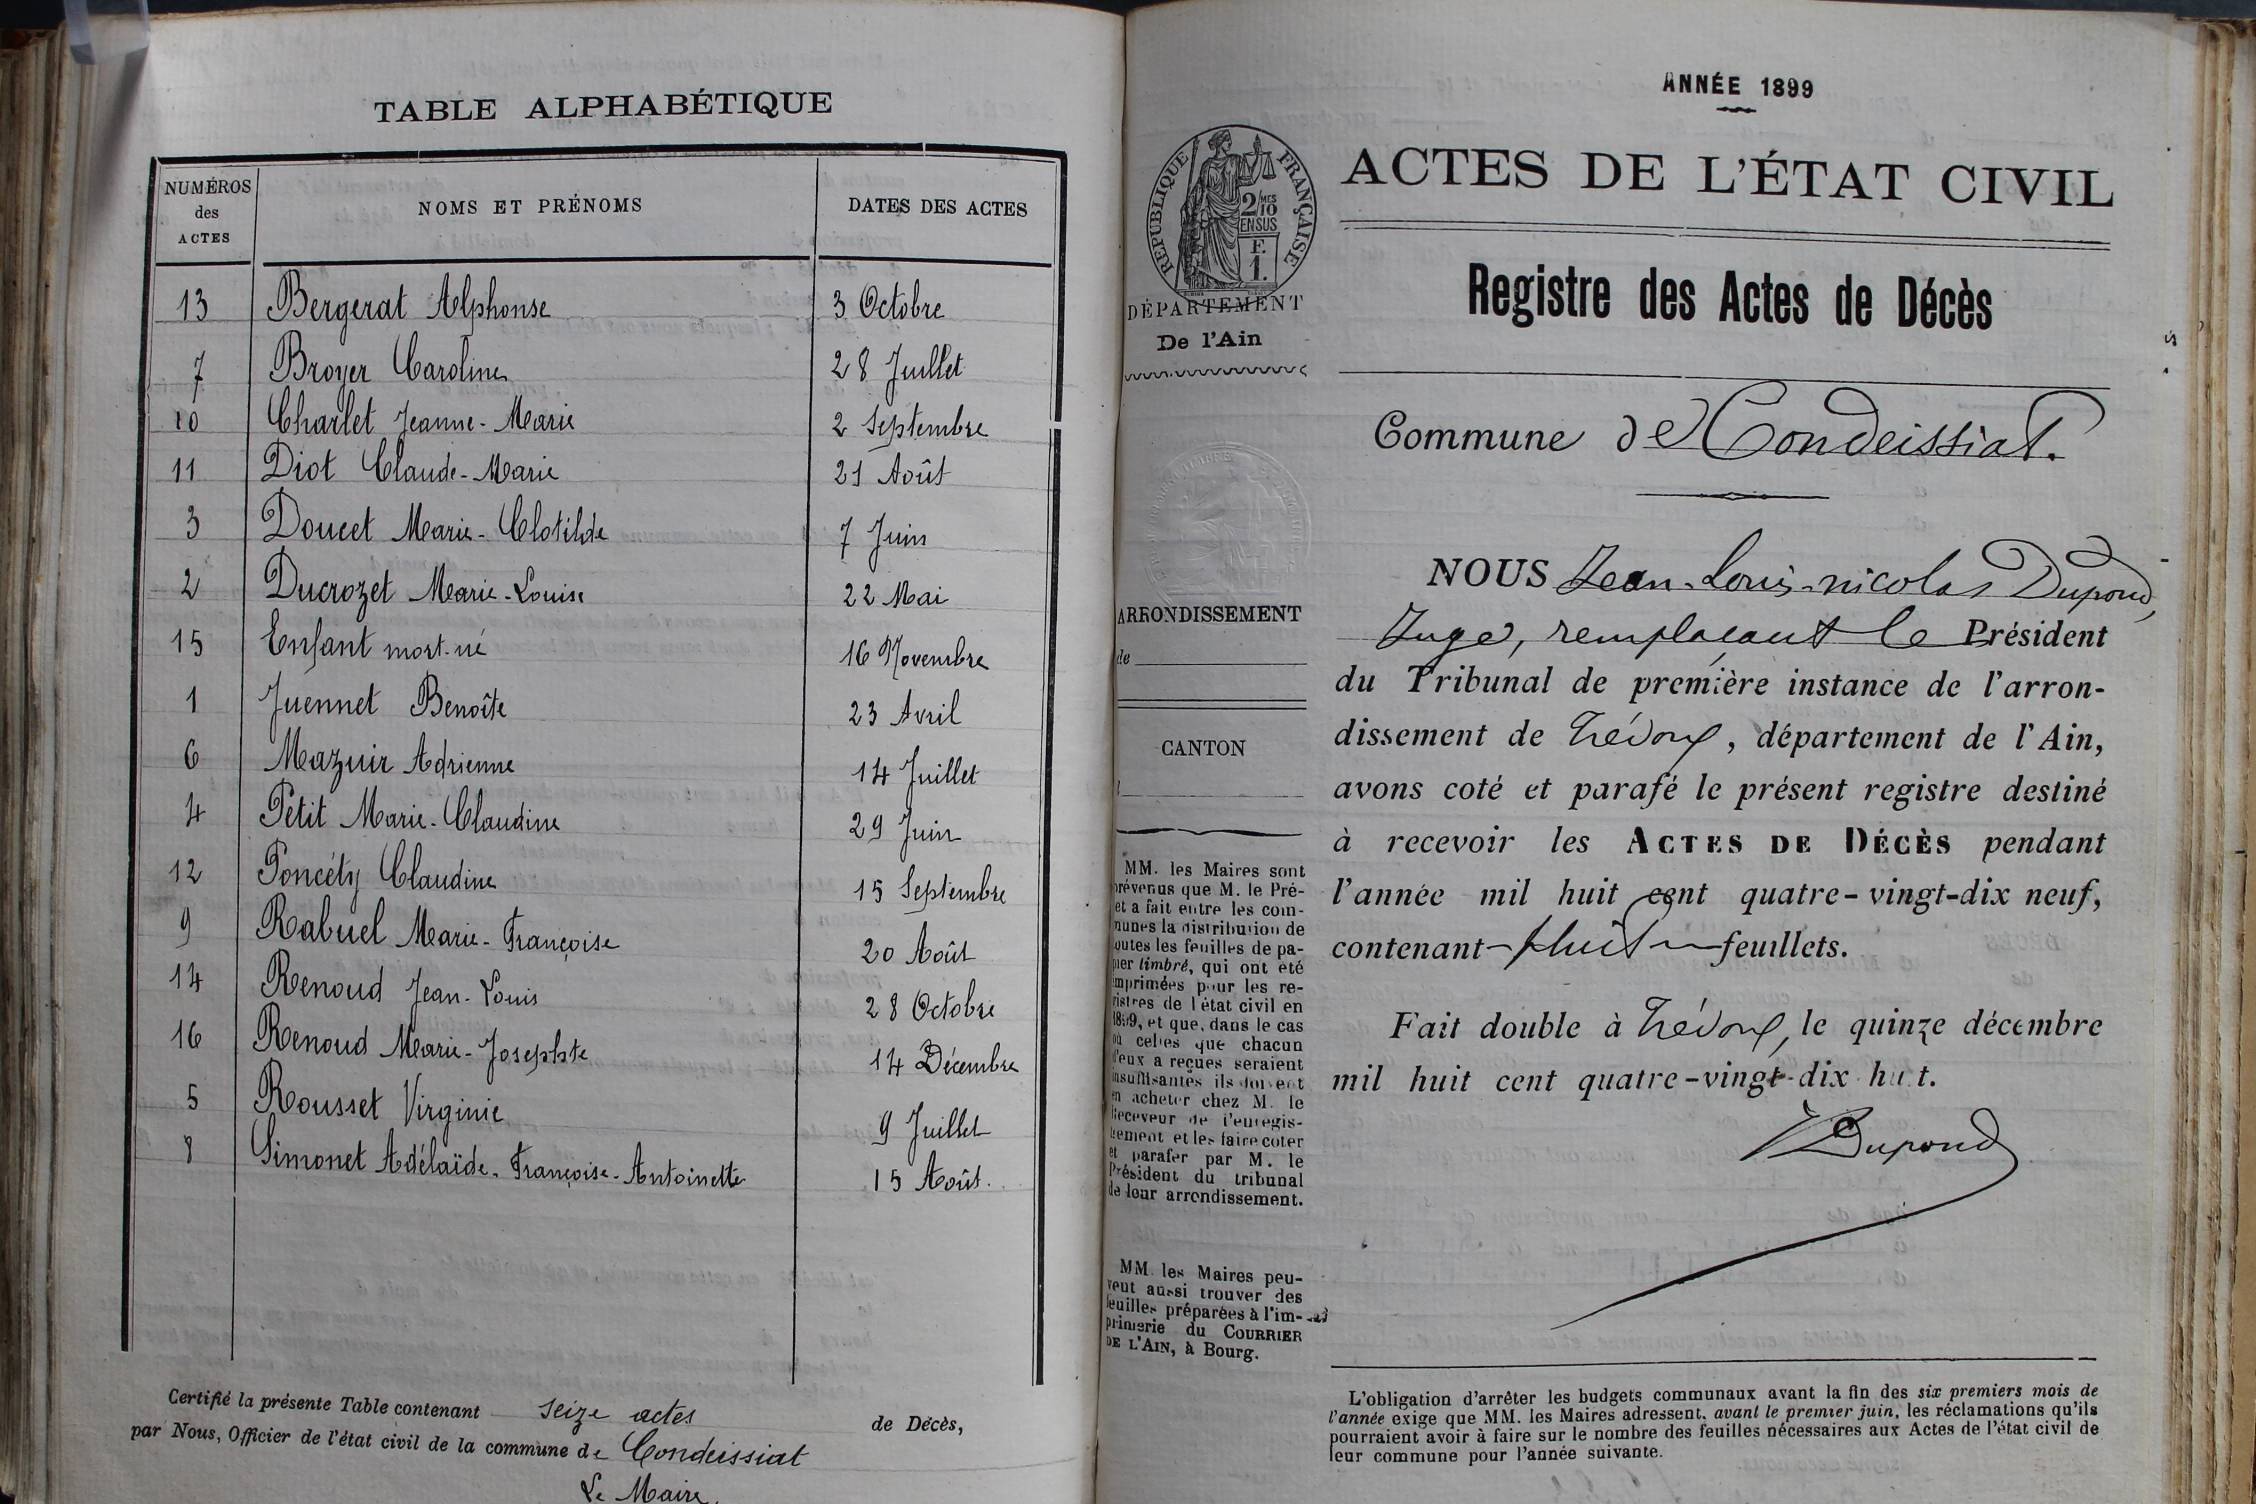 TABLE ALPHABÉTIQUE
NUMÉROS des ACTES NOMS ET PRÉNOMS DATES DES ACTES
13 Bergerat Alphonse 3 Octobre
7 Broyer Caroline 28 Juillet
10 Charlet Jeanne-Marie 2 Septembre
11 Diot Claude-Marie 21 Août
3 Doucet Marie-Clotilde 7 Juin
2 Ducrozet Marie-Louise 22 Mai
15 Enfant mort-né 16 Novembre
1 Juennet Benoîte 23 Avril
6 Mazuir Adrienne 14 Juillet
4 Petit Marie-Claudine 29 Juin
12 Poncéty Claudine 15 Septembre
9 Rabuel Marie-Françoise 20 Août
14 Renoud Jean-Louis 28 Octobre
16 Renoud Marie-Josephte 14 Décembre
5 Rousset Virginie 9 Juillet
8 Simonet Adélaïde-Françoise-Antoinette 15 Août.
Certifié la présente Table contenant seize actes de Décès,
par Nous, Officier de l'état civil de la commune de Condeissiat
Le Maire,
ANNÉE 1899
RÉPUBLIQUE FRANÇAISE
2/10 MES
EN SUS
F.
1.
DÉPARTEMENT
De l'Ain
ARRONDISSEMENT
de
CANTON
MM. les Maires sont
prévenus que M. le Pré-
et a fait entre les com-
munes la distribution de
toutes les feuilles de pa-
pier timbré, qui ont été
imprimées pour les re-
gistres de l'état civil en
1899, et que, dans le cas
où celles que chacun
d'eux a reçues seraient
insuffisantes ils doivent
en acheter chez M. le
Receveur de l'enregis-
trement et les faire coter
et parafer par M. le
Président du tribunal
de leur arrondissement.
MM. les Maires peu-
vent aussi trouver des
feuilles préparées à l'im-
primerie du COURRIER
DE L'AIN, à Bourg.
ACTES DE L'ÉTAT CIVIL
Registre des Actes de Décès
Commune de Condeissiat.
NOUS Jean-Louis-Nicolas Dupond,
Juge, remplaçant le Président
du Tribunal de première instance de l'arron-
dissement de Trévoux, département de l'Ain,
avons coté et parafé le présent registre destiné
à recevoir les ACTES DE DÉCÈS pendant
l'année mil huit cent quatre-vingt-dix neuf,
contenant huit feuillets.
Fait double à Trévoux, le quinze décembre
mil huit cent quatre-vingt-dix huit.
Dupond
L'obligation d'arrêter les budgets communaux avant la fin des six premiers mois de
l'année exige que MM. les Maires adressent, avant le premier juin, les réclamations qu'ils
pourraient avoir à faire sur le nombre des feuilles nécessaires aux Actes de l'état civil de
leur commune pour l'année suivante.